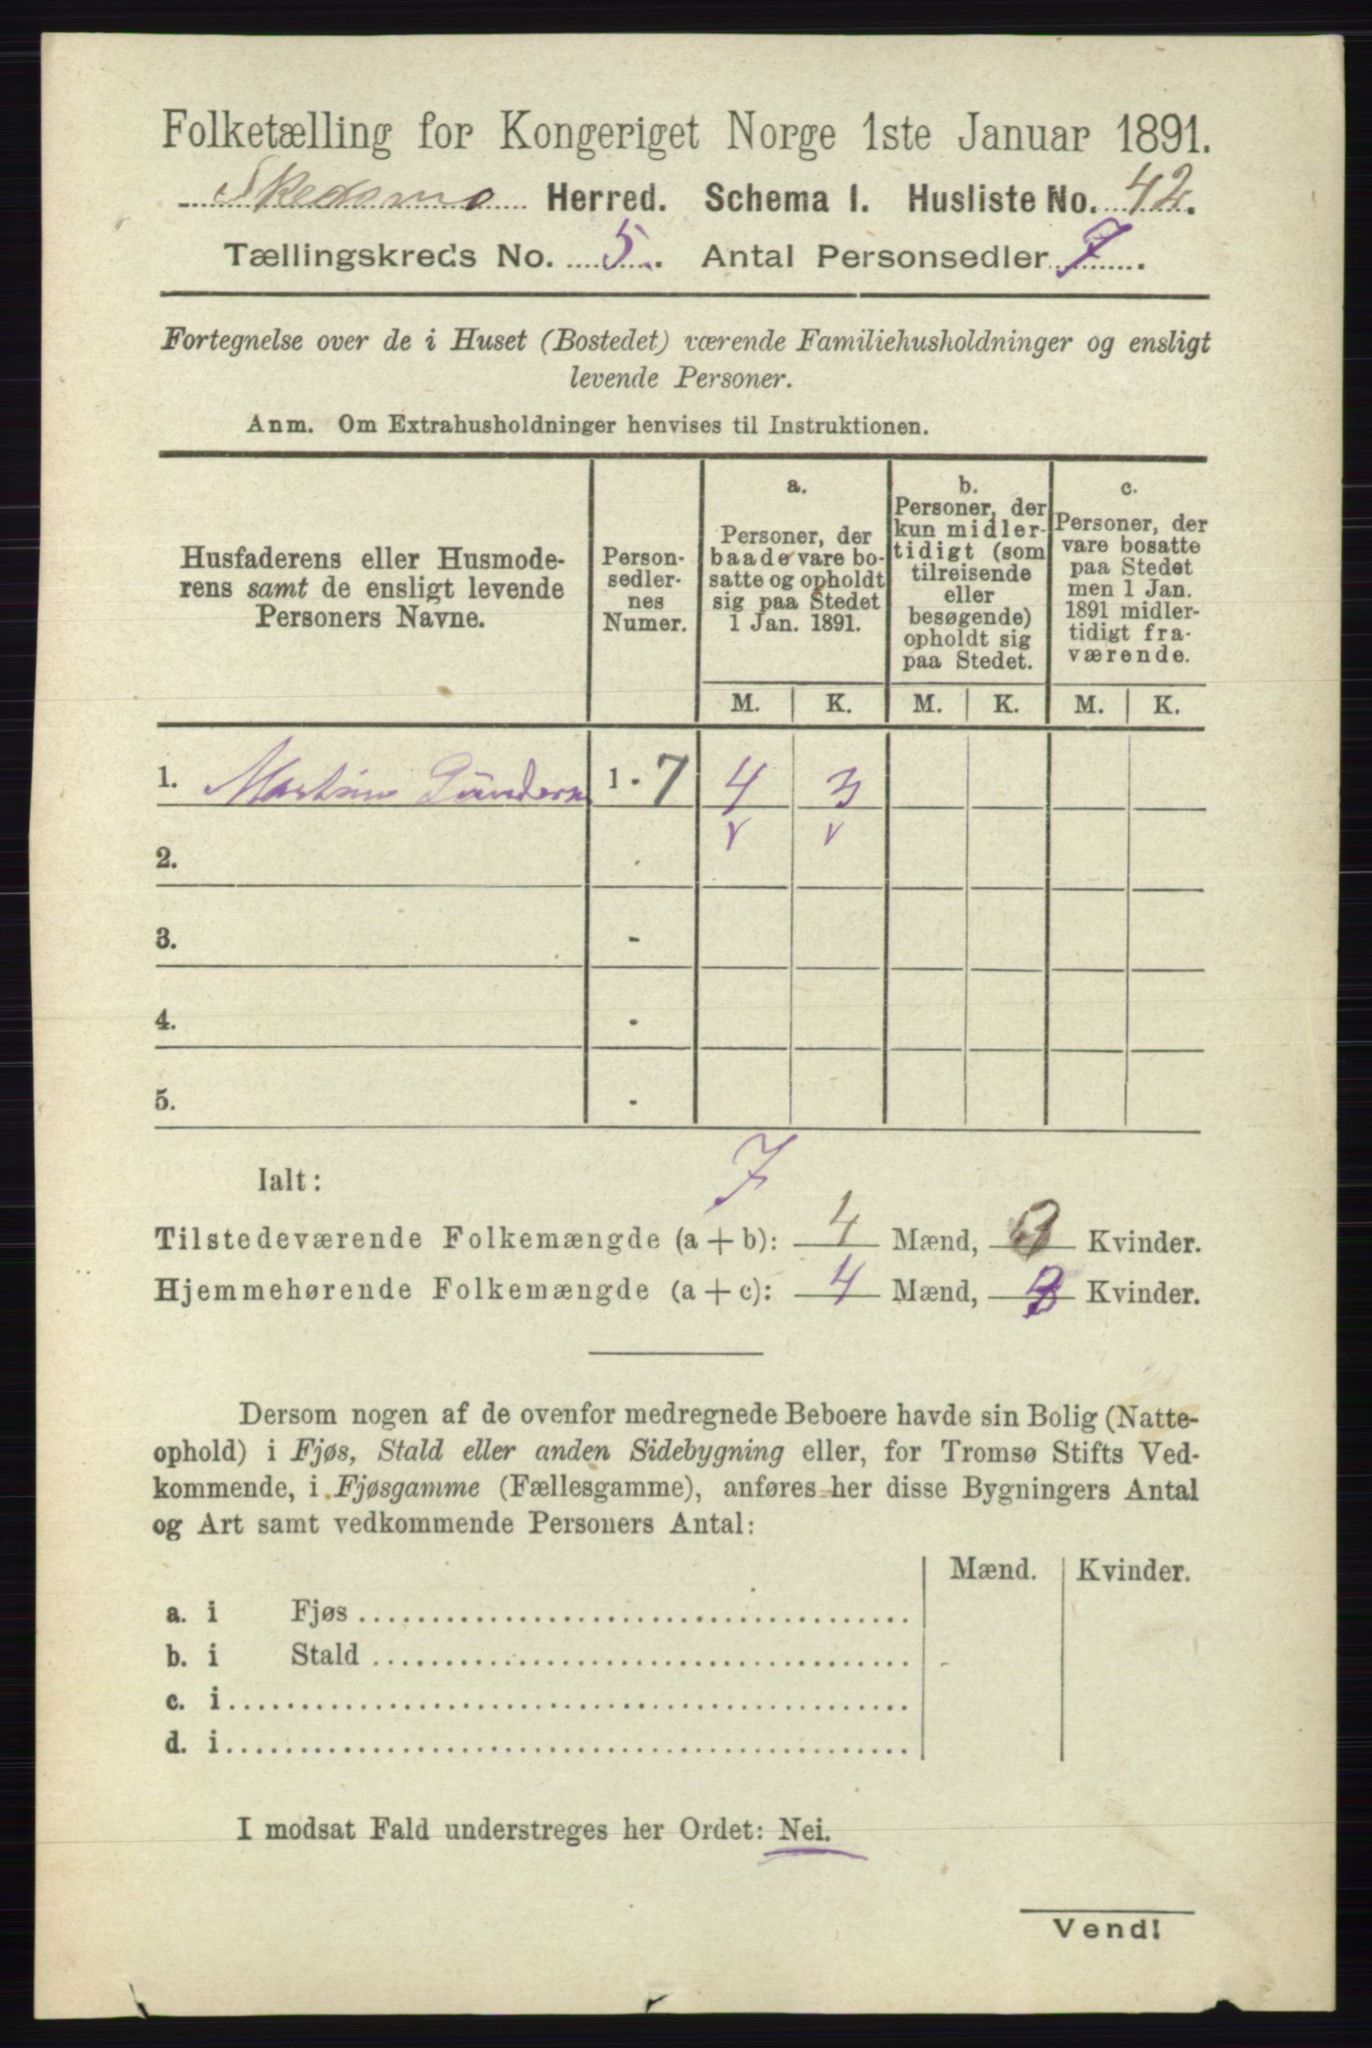 Folketælling for Kongeriget Norge 1ste Januar 1891.
Skedsmo Herred. Schema I. Husliste No. 42.
Tællingskreds No. 5. Antal Personsedler 7.
Fortegnelse over de i Huset (Bostedet) værende Familiehusholdninger og ensligt
levende Personer.
Anm. Om Extrahusholdninger henvises til Instruktionen.
Husfaderens eller Husmode-
rens samt de ensligt levende
Personers Navne.
Person-
sedler-
nes
Numer.
a.
Personer, der
baade vare bo-
satte og opholdt
sig paa Stedet
1 Jan. 1891.
b.
Personer, der
kun midler-
tidigt (som
tilreisende
eller
besøgende)
opholdt sig
paa Stedet.
c.
Personer, der
vare bosatte
paa Stedet
men 1 Jan.
1891 midler-
tidigt fra-
værende.
M. K. M. K. M. K.
1. 1 - 7 4 3
v v
2.
3. -
4. -
5. -
7
Ialt:
Tilstedeværende Folkemængde (a + b): 4 Mænd, 3 Kvinder.
Hjemmehørende Folkemængde (a + c): 4 Mænd, 3 Kvinder.
Dersom nogen af de ovenfor medregnede Beboere havde sin Bolig (Natte-
ophold) i Fjøs, Stald eller anden Sidebygning eller, for Tromsø Stifts Ved-
kommende, i Fjøsgamme (Fællesgamme), anføres her disse Bygningers Antal
og Art samt vedkommende Personers Antal:
Mænd. Kvinder.
a. i Fjøs
b. i Stald
c. i
d. i
I modsat Fald understreges her Ordet: Nei.
Vend!